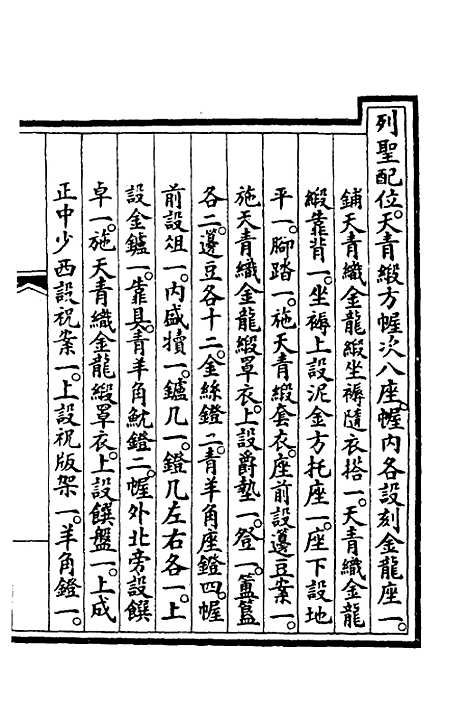 列聖配位。天青緞方幄次八座。幄内各設刻金龍座一。
鋪天青織金龍緞坐褥隨衣搭一。天青織金龍
緞靠背一。坐褥上設泥金方托座一。座下設地
平一。腳踏一。施天青緞套衣。座前設籩豆案一。
施天青織金龍緞罩衣。上設爵墊一。登一。簠簋
各二。籩豆各十二。金絲鐙二。青羊角座鐙四。幄
前設俎一。内盛犢一。鑪几一。鐙几左右各一。上
設金鑪一。靠具。青羊角魫鐙二。幄外北旁設饌
卓一。施天青織金龍緞罩衣。上設饌盤一。上成
正中少西設祝案一。上設祝版架一。羊角鐙一。